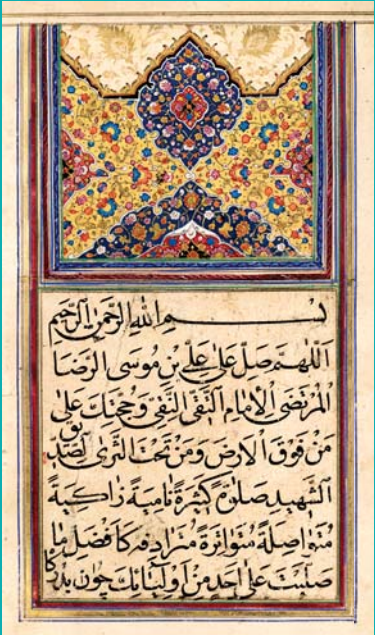 بِسْمِ اللهِ الرَّحْمٰنِ الرَّحِيْمِ
اَللّٰهُمَّ صَلِّ عَلٰى عَلِىِّ بْنِ مُوسَى الرِّضَا
الْمُرْتَضٰى الْاِمَامِ التَّقِىِّ النَّقِىِّ وَحُجَّتِكَ عَلٰى
مَنْ فَوْقَ الْاَرْضِ وَمَنْ تَحْتَ الثَّرٰى الصِّدِّيقِ
الشَّهِيدِ صَلٰوةً كَثِيرَةً نَامِيَةً زَاكِيَةً
مُتَوَاصِلَةً مُتَوَاتِرَةً مُتَرَادِفَةً كَاَفْضَلِ مَا
صَلَّيْتَ عَلٰى اَحَدٍ مِنْ اَوْلِيَائِكَ چون